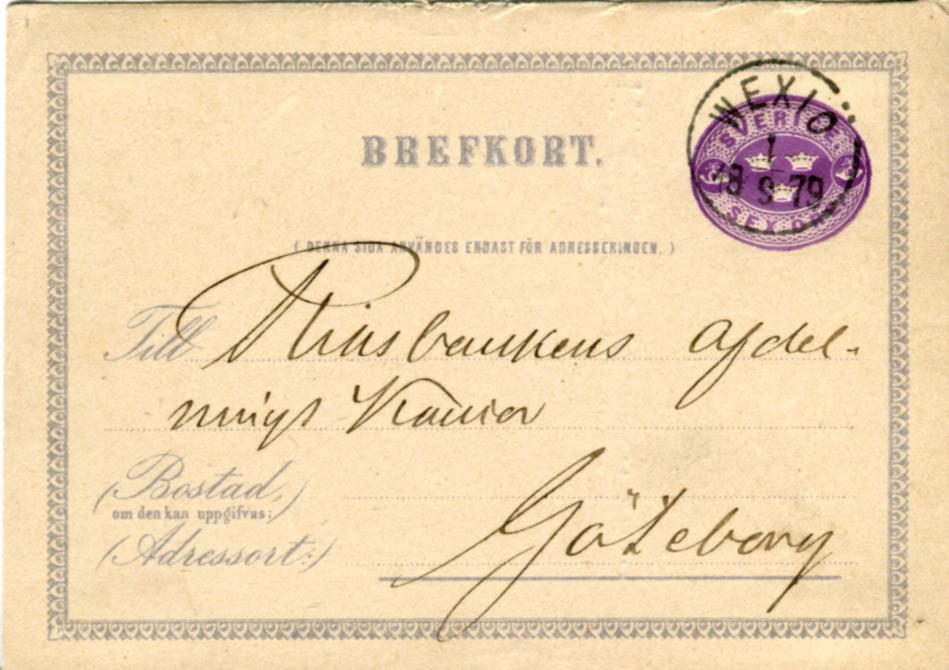 BREFKORT.
WEXIÖ
SVERIGE
1
18 9 79
SEX ÖRE
( DENNA SIDA ANVÄNDES ENDAST FÖR ADRESSERINGEN. )
Till Riksbankens Afdel-
nings Kontor
(Bostad,)
om den kan uppgifvas:
(Adressort:) Göteborg